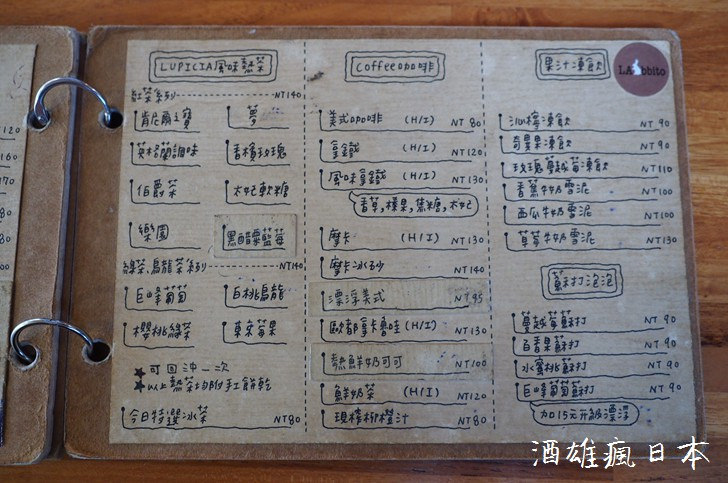 LUPICIA風味熱茶
紅茶系列 NT140
肯尼爾之寶 夢
英格蘭調味 香檳玫瑰
伯爵茶 太妃軟糖
樂園 黑醋栗藍莓
綠茶、烏龍茶系列 NT140
巨峰葡萄 白桃烏龍
櫻桃綠茶 東京莓果
★可回沖一次
★以上熱茶均附手工餅乾
今日特選冰茶 NT80
Coffee咖啡
美式咖啡 (H/I) NT 80
拿鐵 (H/I) NT120
風味拿鐵 (H/I) NT130
香草,榛果,焦糖,太妃
摩卡 (H/I) NT130
摩卡冰砂 NT140
漂浮美式 NT95
歐都拿卡魯哇 (H/I) NT130
熱鮮奶可可 NT100
鮮奶茶 (H/I) NT120
現榨柳橙汁 NT80
果汁凍飲
沁檸凍飲 NT 90
奇異果凍飲 NT 90
玫瑰蔓越莓凍飲 NT110
香蕉牛奶雪泥 NT100
西瓜牛奶雪泥 NT100
草莓牛奶雪泥 NT130
蘇打泡泡
蔓越莓蘇打 NT 90
百香果蘇打 NT 90
水蜜桃蘇打 NT 90
巨峰葡萄蘇打 NT 90
加15元升級漂浮
120
160
170
80
80
酒雄瘋日本